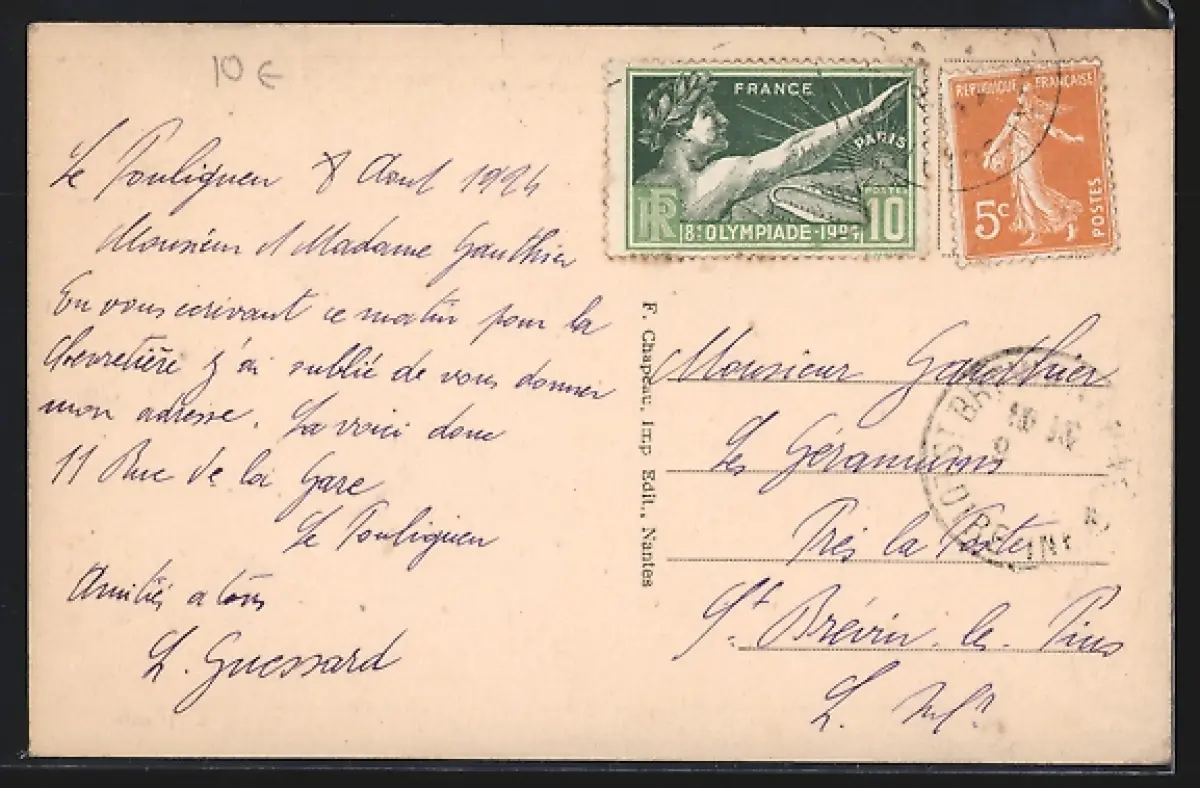 10 €
Le Pouliguen 8 Aout 1924
Monsieur et Madame Gauthier
En vous ecrivant ce matin pour la
Chevretière j'ai oublié de vous donner
mon adresse. La voici donc
11 Rue de la Gare
Le Pouliguen
Amitiés a tous
L. Guessard
FRANCE
PARIS
RF
POSTES
8e OLYMPIADE - 1924
10
REPUBLIQUE FRANÇAISE
5c
POSTES
F. Chapeau, Imp Edit., Nantes
Monsieur Gauthier
Les Géraniums
Près la Poste
St. Brévin-les-Pins
L. Infre